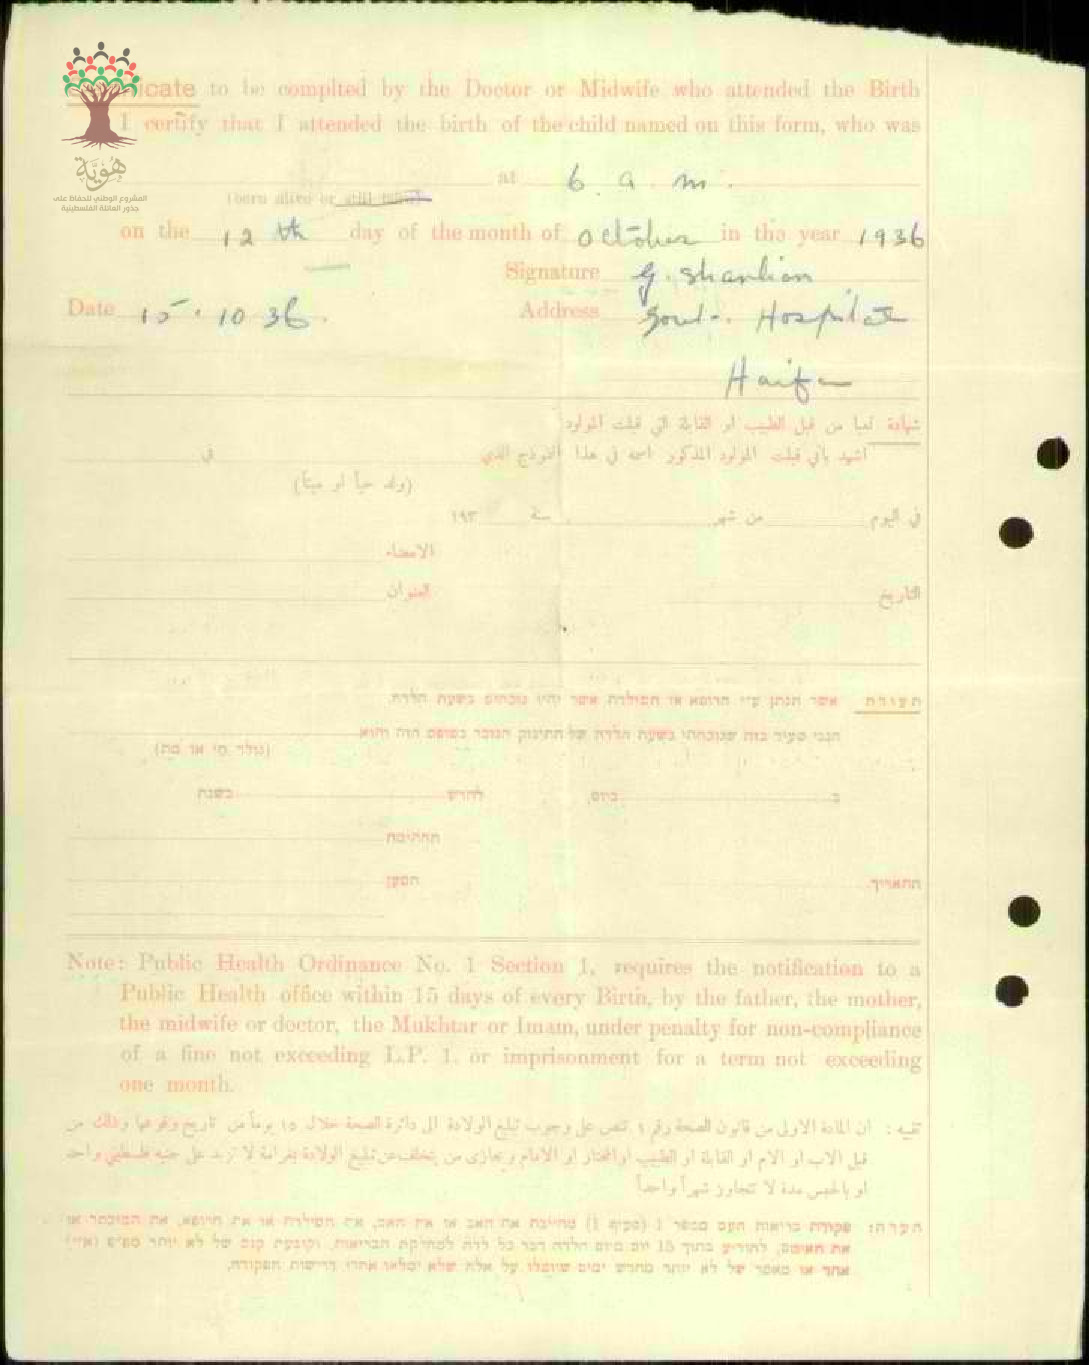 هُوِيَّة
المشروع الوطني للحفاظ على
جذور العائلة الفلسطينية
icate to be complted by the Doctor or Midwife who attended the Birth
I certify that I attended the birth of the child named on this form, who was
at 6 a.m.
(born alive or still born)
on the 12th day of the month of October in the year 1936
Signature
Date 15.10.36. Address Govt. Hospital
Haifa
شهادة تعبأ من قبل الطبيب او القابلة التي قبلت المولود
اشهد بأني قبلت المولود المذكور اسمه في هذا النموذج الذي في
(ولد حياً او ميتاً)
في اليوم من شهر سنة ١٩٣
الامضاء
التاريخ العنوان
תעודה אשר תנתן ע״י הרופא או המילדת אשר יהיו נוכחים בשעת הלדה.
הנני מעיד בזה שנוכחתי בשעת הלדה של התינוק הנזכר בטופס הזה והוא
(נולד חי או מת)
ב ביום, לחדש בשנת
החתימה
התאריך. המען
Note: Public Health Ordinance No. 1 Section 1, requires the notification to a
Public Health office within 15 days of every Birth, by the father, the mother,
the midwife or doctor, the Mukhtar or Imam, under penalty for non-compliance
of a fine not exceeding L.P. 1. or imprisonment for a term not exceeding
one month.
تنبيه : ان المادة الاولى من قانون الصحة رقم ١ تنص على وجوب تبليغ الولادة الى دائرة الصحة خلال ١٥ يوماً من تاريخ وقوعها وذلك من
قبل الاب او الام او القابلة او الطبيب او المختار او الامام ويجازى من يتخلف عن تبليغ الولادة بغرامة لا تزيد على جنيه فلسطيني واحد
او بالحبس مدة لا تتجاوز شهراً واحداً
הערה: פקודת בריאות העם מספר 1 (סעיף 1) מחייבת את האב או את האם, את המילדת או את הרופא, את המוכתר או
את האימם, להודיע בתוך 15 יום מיום הלדה דבר כל לדה למחלקת הבריאות, וקובעת קנס של לא יותר
אחד או מאסר של לא יותר מחדש ימים שיוטלו על אלה שלא ימלאו אחרי דרישות הפקודה.